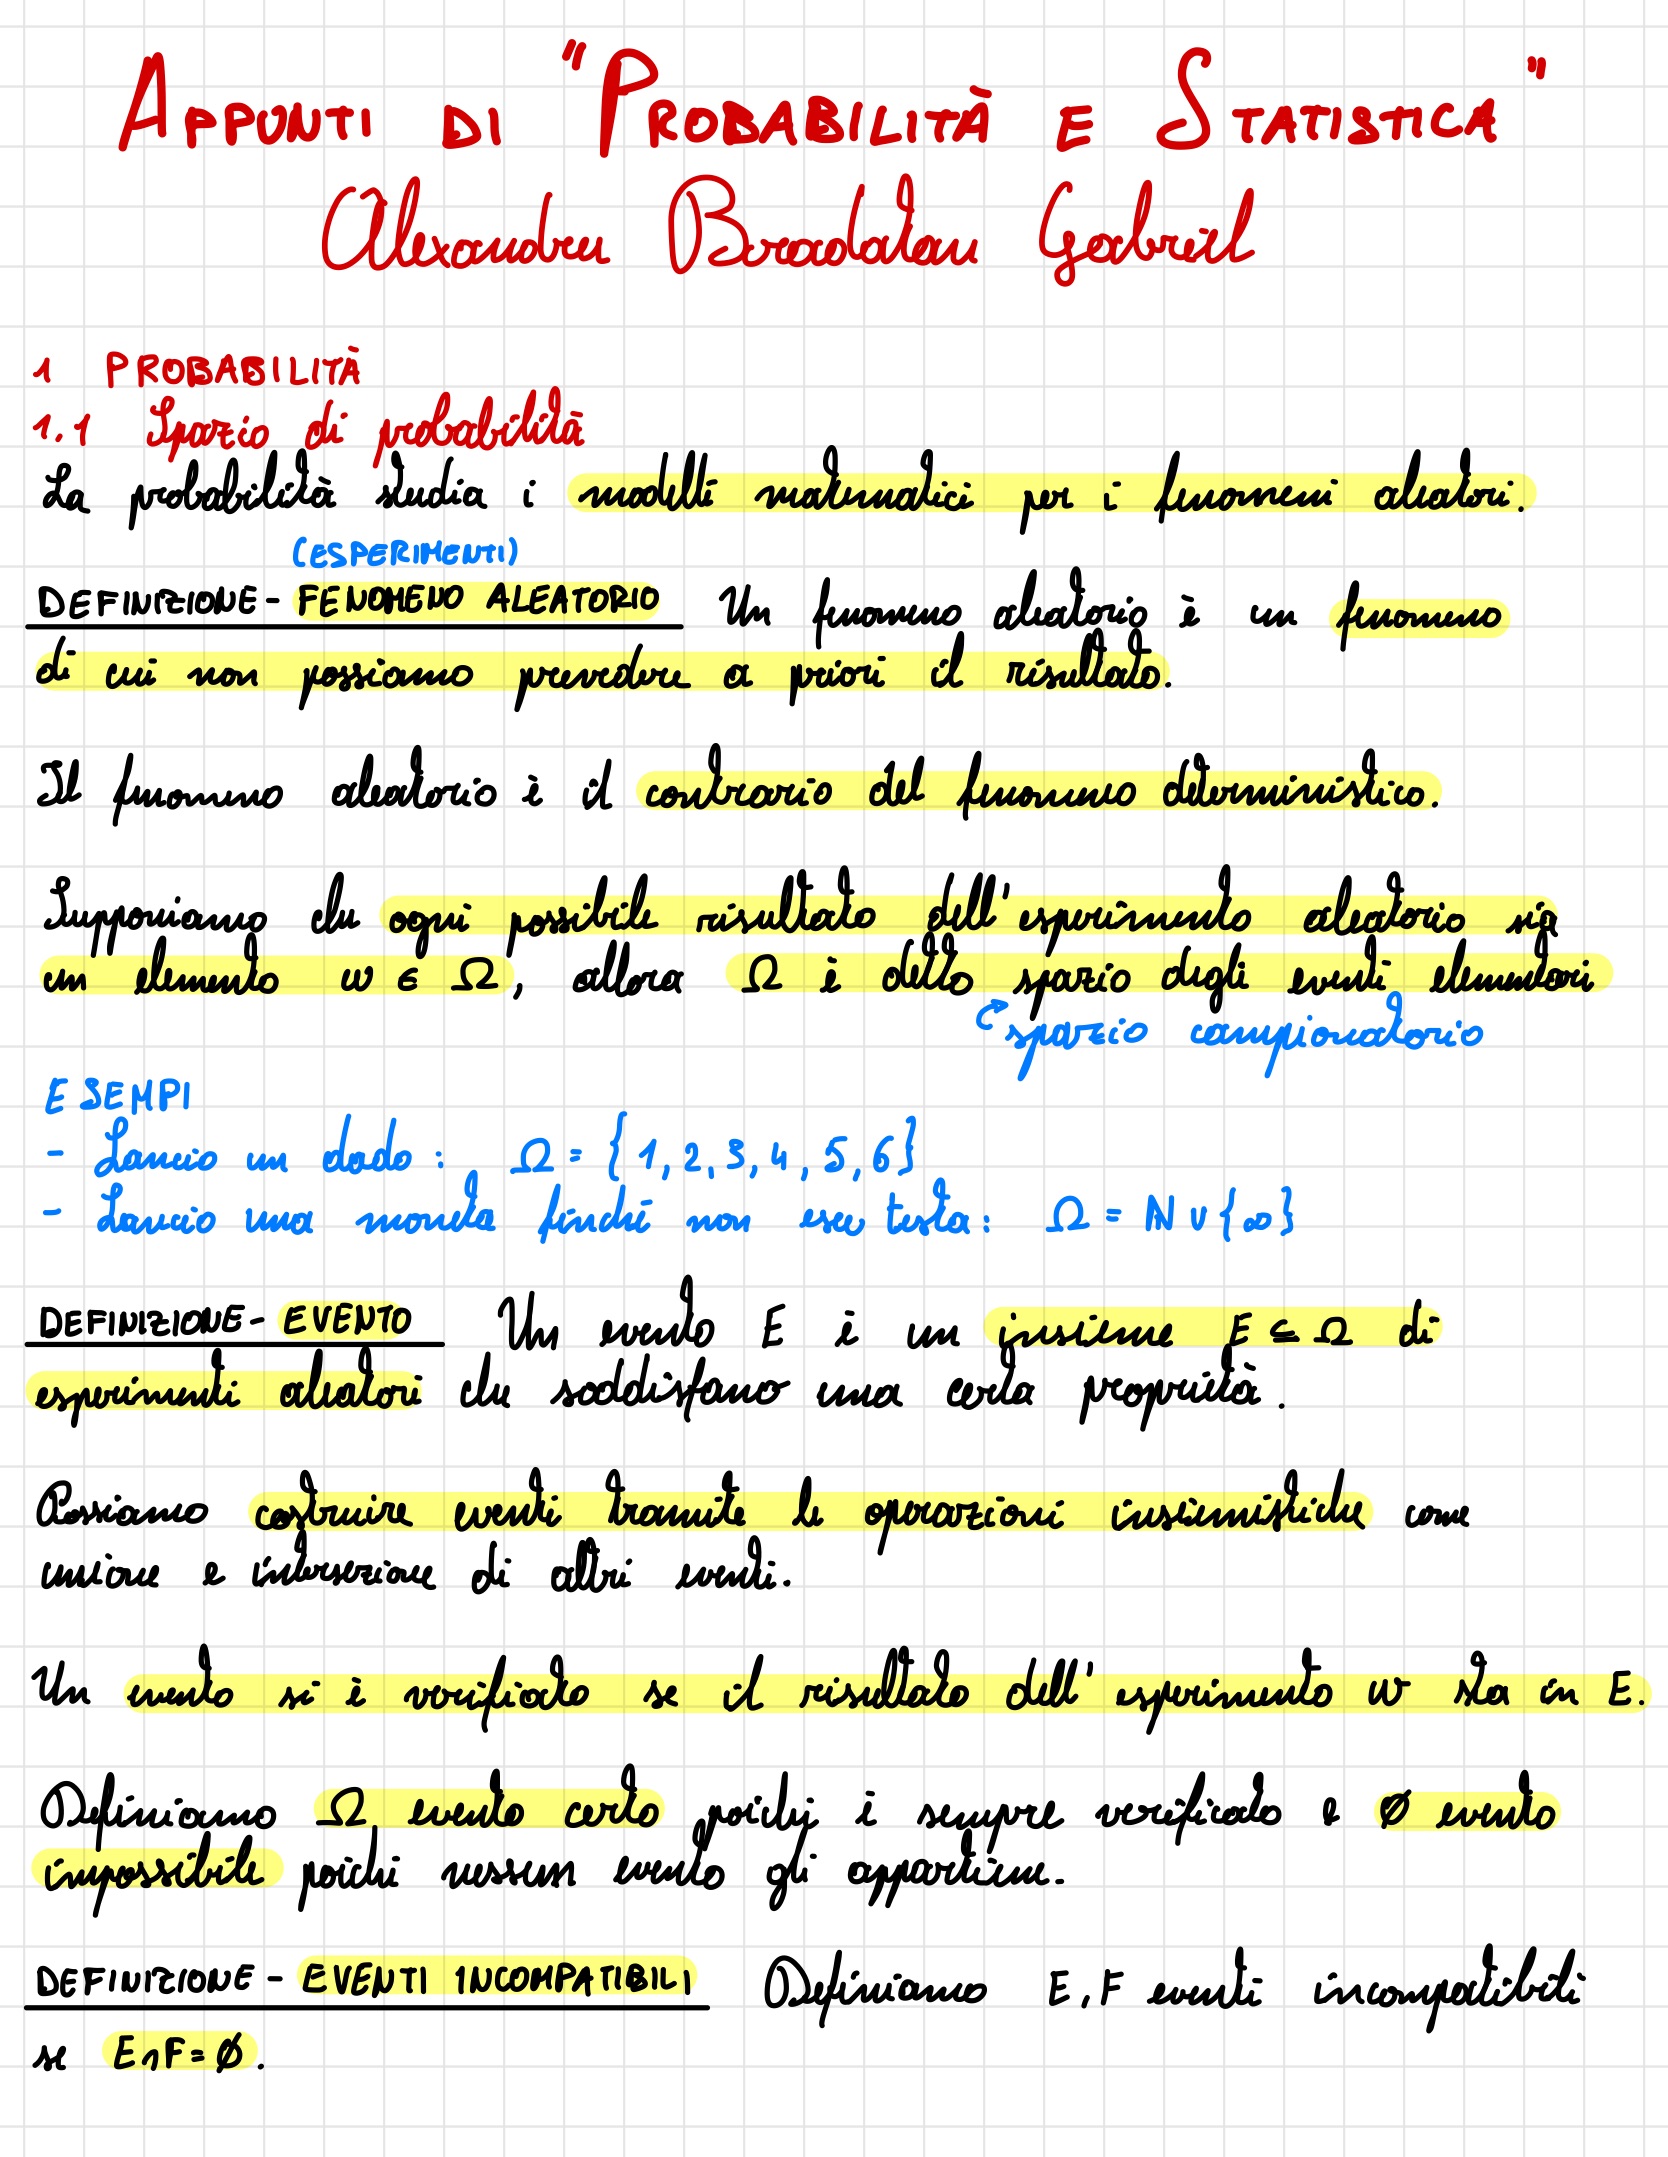 APPUNTI DI "PROBABILITÀ E STATISTICA"
Alexandru Bradatan Gabriel
1 PROBABILITÀ
1.1 Spazio di probabilità
La probabilità studia i modelli matematici per i fenomeni aleatori.
(ESPERIMENTI)
DEFINIZIONE - FENOMENO ALEATORIO Un fenomeno aleatorio è un fenomeno
di cui non possiamo prevedere a priori il risultato.
Il fenomeno aleatorio è il contrario del fenomeno deterministico.
Supponiamo che ogni possibile risultato dell'esperimento aleatorio sia
un elemento ω ∈ Ω, allora Ω è detto spazio degli eventi elementari
↱ spazio campionatorio
ESEMPI
- Lancio un dado: Ω = {1, 2, 3, 4, 5, 6}
- Lancio una moneta finché non esce testa: Ω = ℕ ∪ {∞}
DEFINIZIONE - EVENTO Un evento E è un insieme E ⊆ Ω di
esperimenti aleatori che soddisfano una certa proprietà.
Possiamo costruire eventi tramite le operazioni insiemistiche come
unione e intersezione di altri eventi.
Un evento si è verificato se il risultato dell'esperimento ω sta in E.
Definiamo Ω evento certo poiché è sempre verificato e ∅ evento
impossibile poiché nessun evento gli appartiene.
DEFINIZIONE - EVENTI INCOMPATIBILI Definiamo E, F eventi incompatibili
se E∩F=∅.